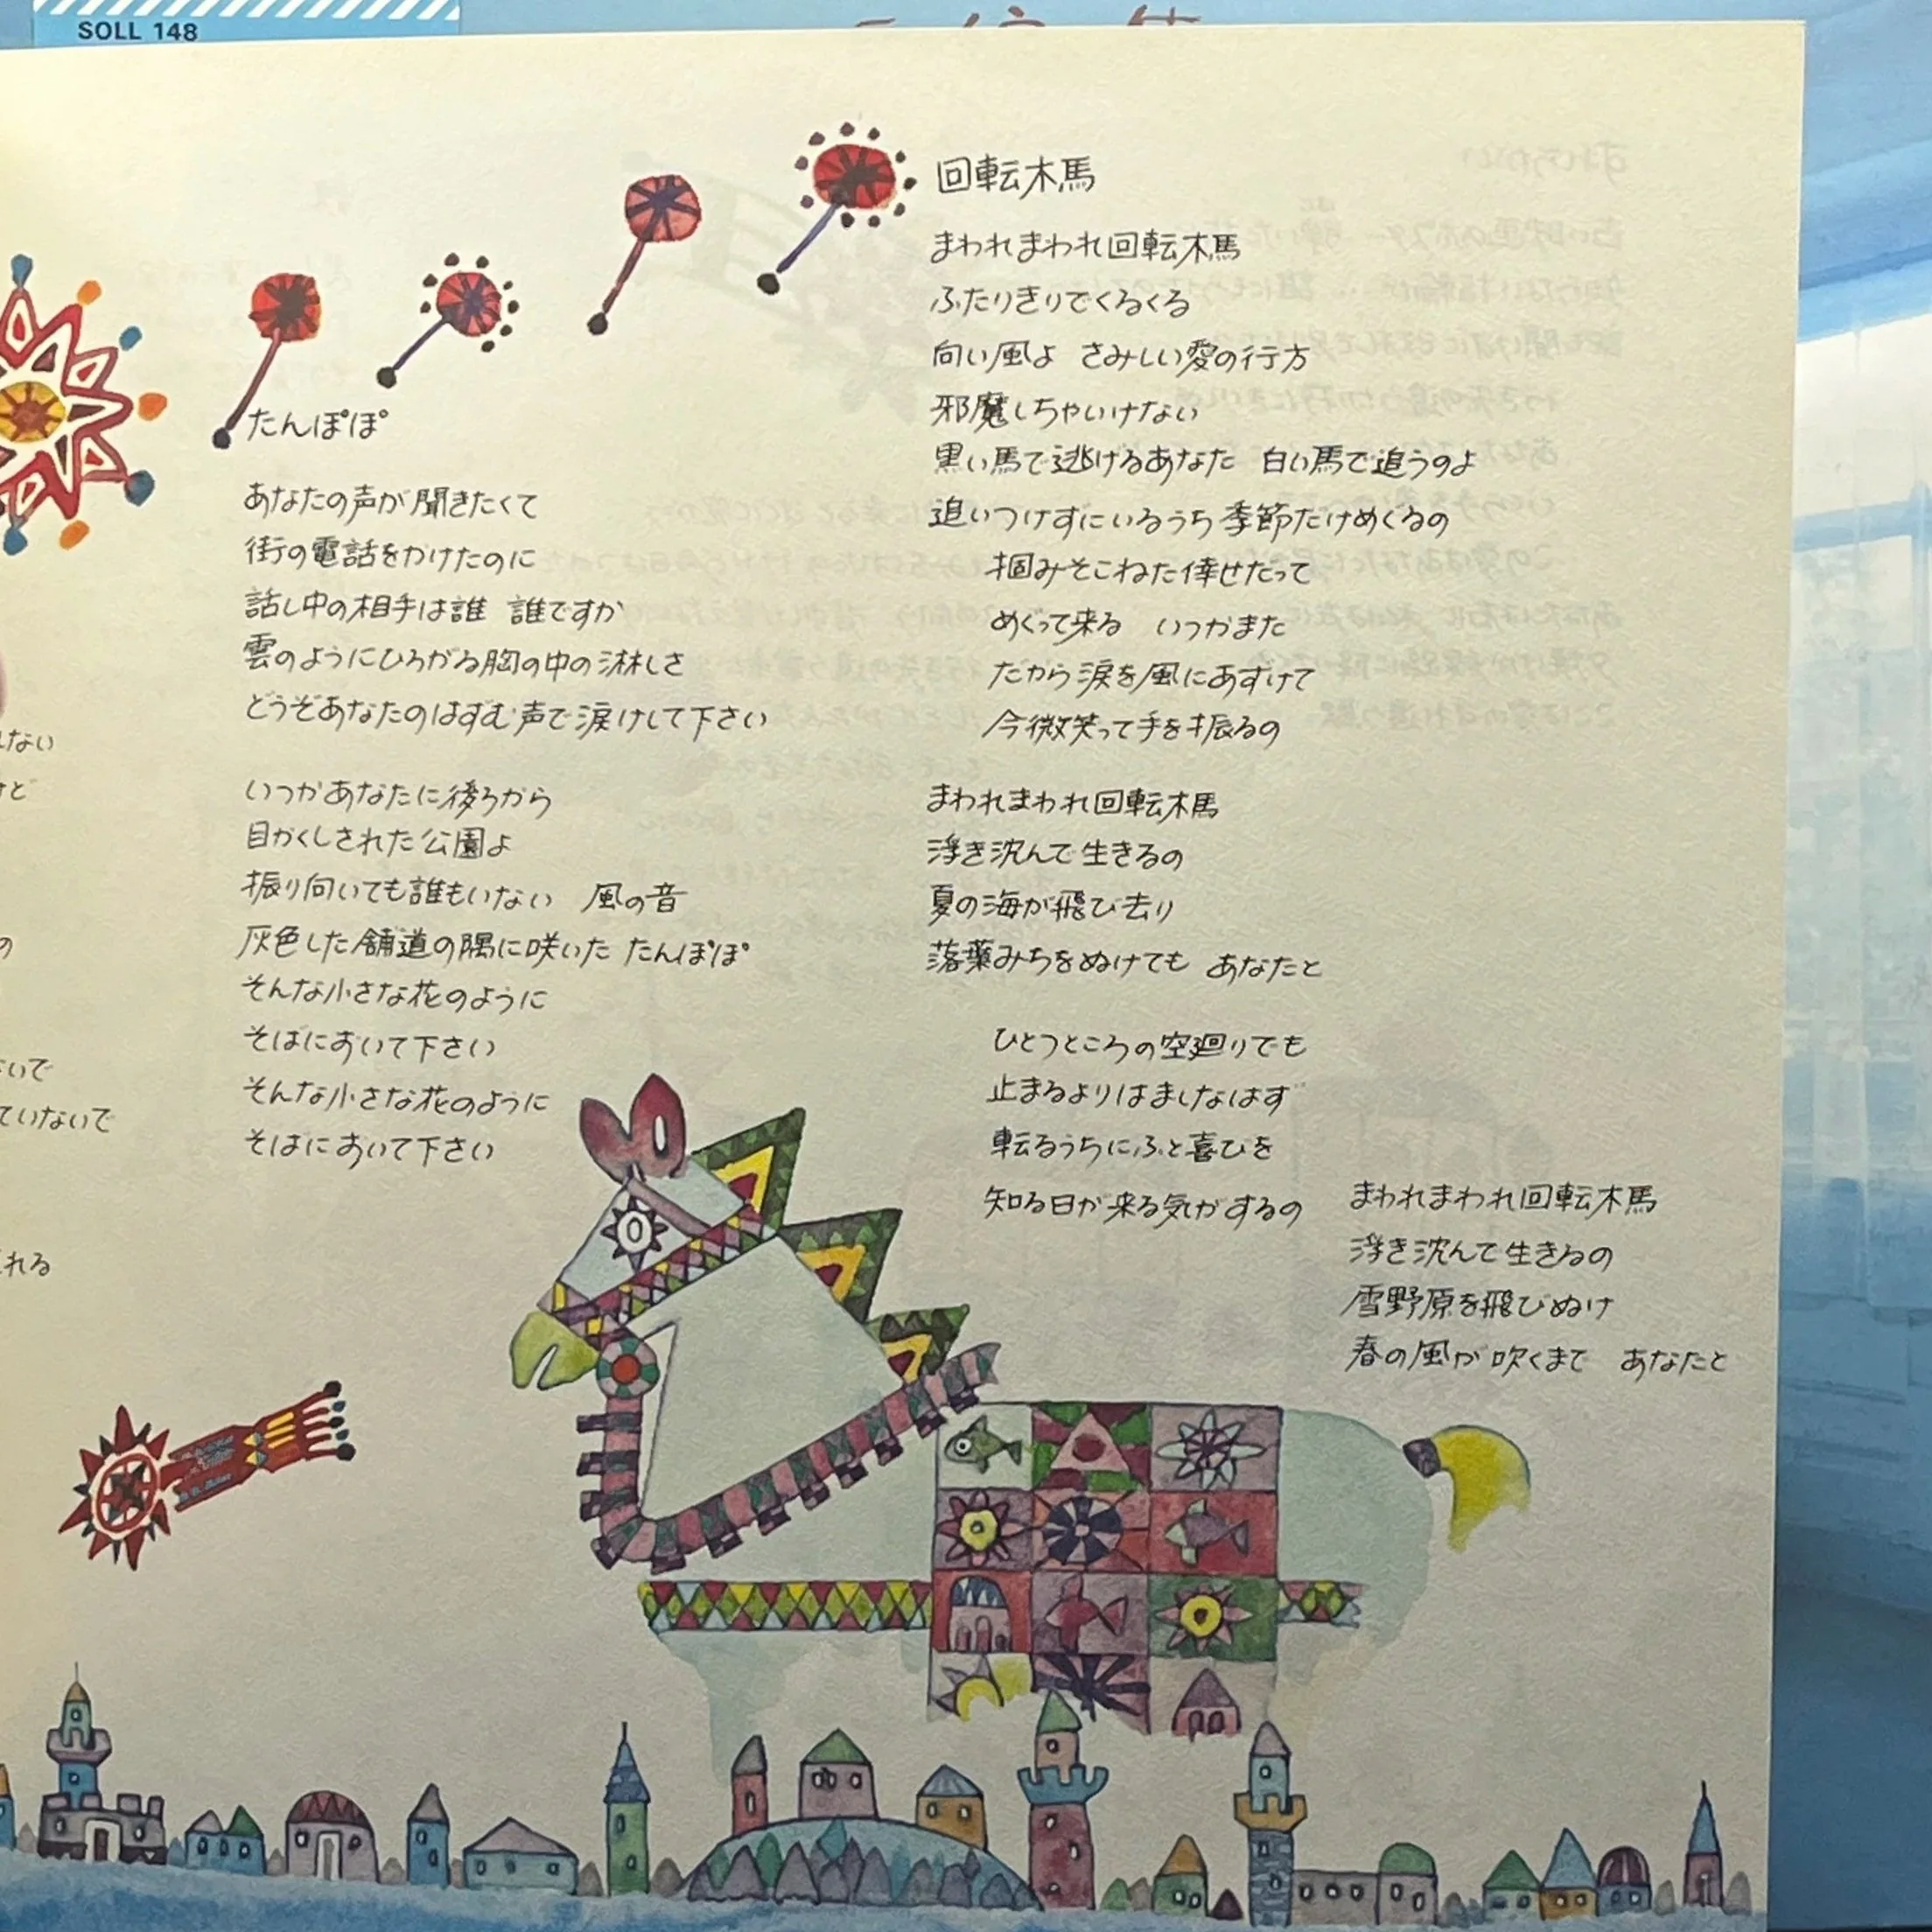 SOLL 148
たんぽぽ
あなたの声が聞きたくて
街の電話をかけたのに
話し中の相手は誰 誰ですか
雲のようにひろがる胸の中の淋しさ
どうぞあなたのはずむ声で涙けして下さい
いつかあなたに後ろから
目かくしされた公園よ
振り向いても誰もいない 風の音
灰色した舗道の隅に咲いた たんぽぽ
そんな小さな花のように
そばにおいて下さい
そんな小さな花のように
そばにおいて下さい
回転木馬
まわれまわれ回転木馬
ふたりきりでくるくる
向い風よ さみしい愛の行方
邪魔しちゃいけない
黒い馬で逃げるあなた 白い馬で追うのよ
追いつけずにいるうち季節だけめぐるの
掴みそこねた倖せだって
めぐって来る いつかまた
だから涙を風にあずけて
今微笑って手を振るの
まわれまわれ回転木馬
浮き沈んで生きるの
夏の海が飛び去り
落葉みちをぬけても あなたと
ひとつところの空廻りでも
止まるよりはましなはず
転るうちにふと喜びを
知る日が来る気がするの
まわれまわれ回転木馬
浮き沈んで生きるの
雪野原を飛びぬけ
春の風が吹くまで あなたと
れない
けど
の
いで
ていないで
れる